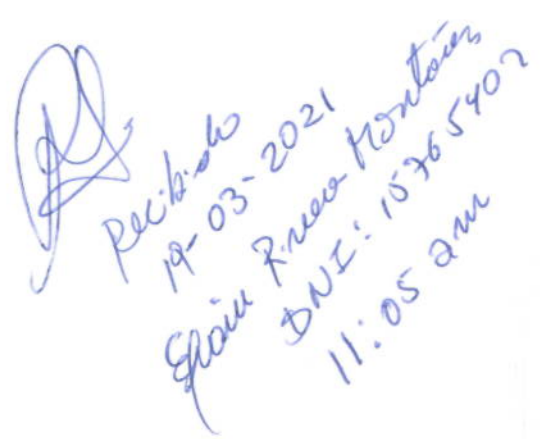 Recibido
19-03-2021
Efraín Rivera Montañez
DNI: 15765402
11:05 am